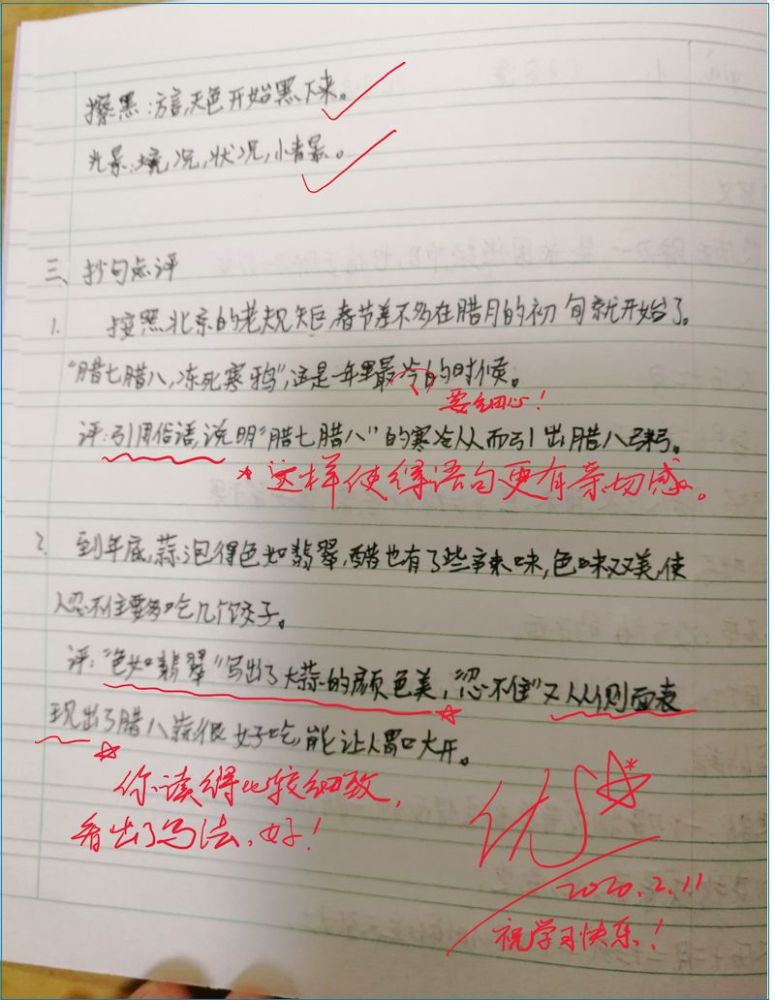 擦黑:方言,天色开始黑下来。
光景:境况,状况,小情景。
三、抄句点评
1. 按照北京的老规矩,春节差不多在腊月的初旬就开始了。
“腊七腊八,冻死寒鸦”,这是一年里最冷的时候。
要细心!
评:引用俗语,说明“腊七腊八”的寒冷从而引出腊八粥。
*这样使得语句更有亲切感。
2. 到年底,蒜泡得色如翡翠,醋也有了些辣味,色味双美,使
人忍不住要多吃几个饺子。
评:“色如翡翠”写出了大蒜的颜色美,“忍不住”又从侧面表
现出了腊八蒜很好吃,能让人胃口大开。
你读得比较细致,
看出了写法,好!
优
2020.2.11
祝学习快乐!